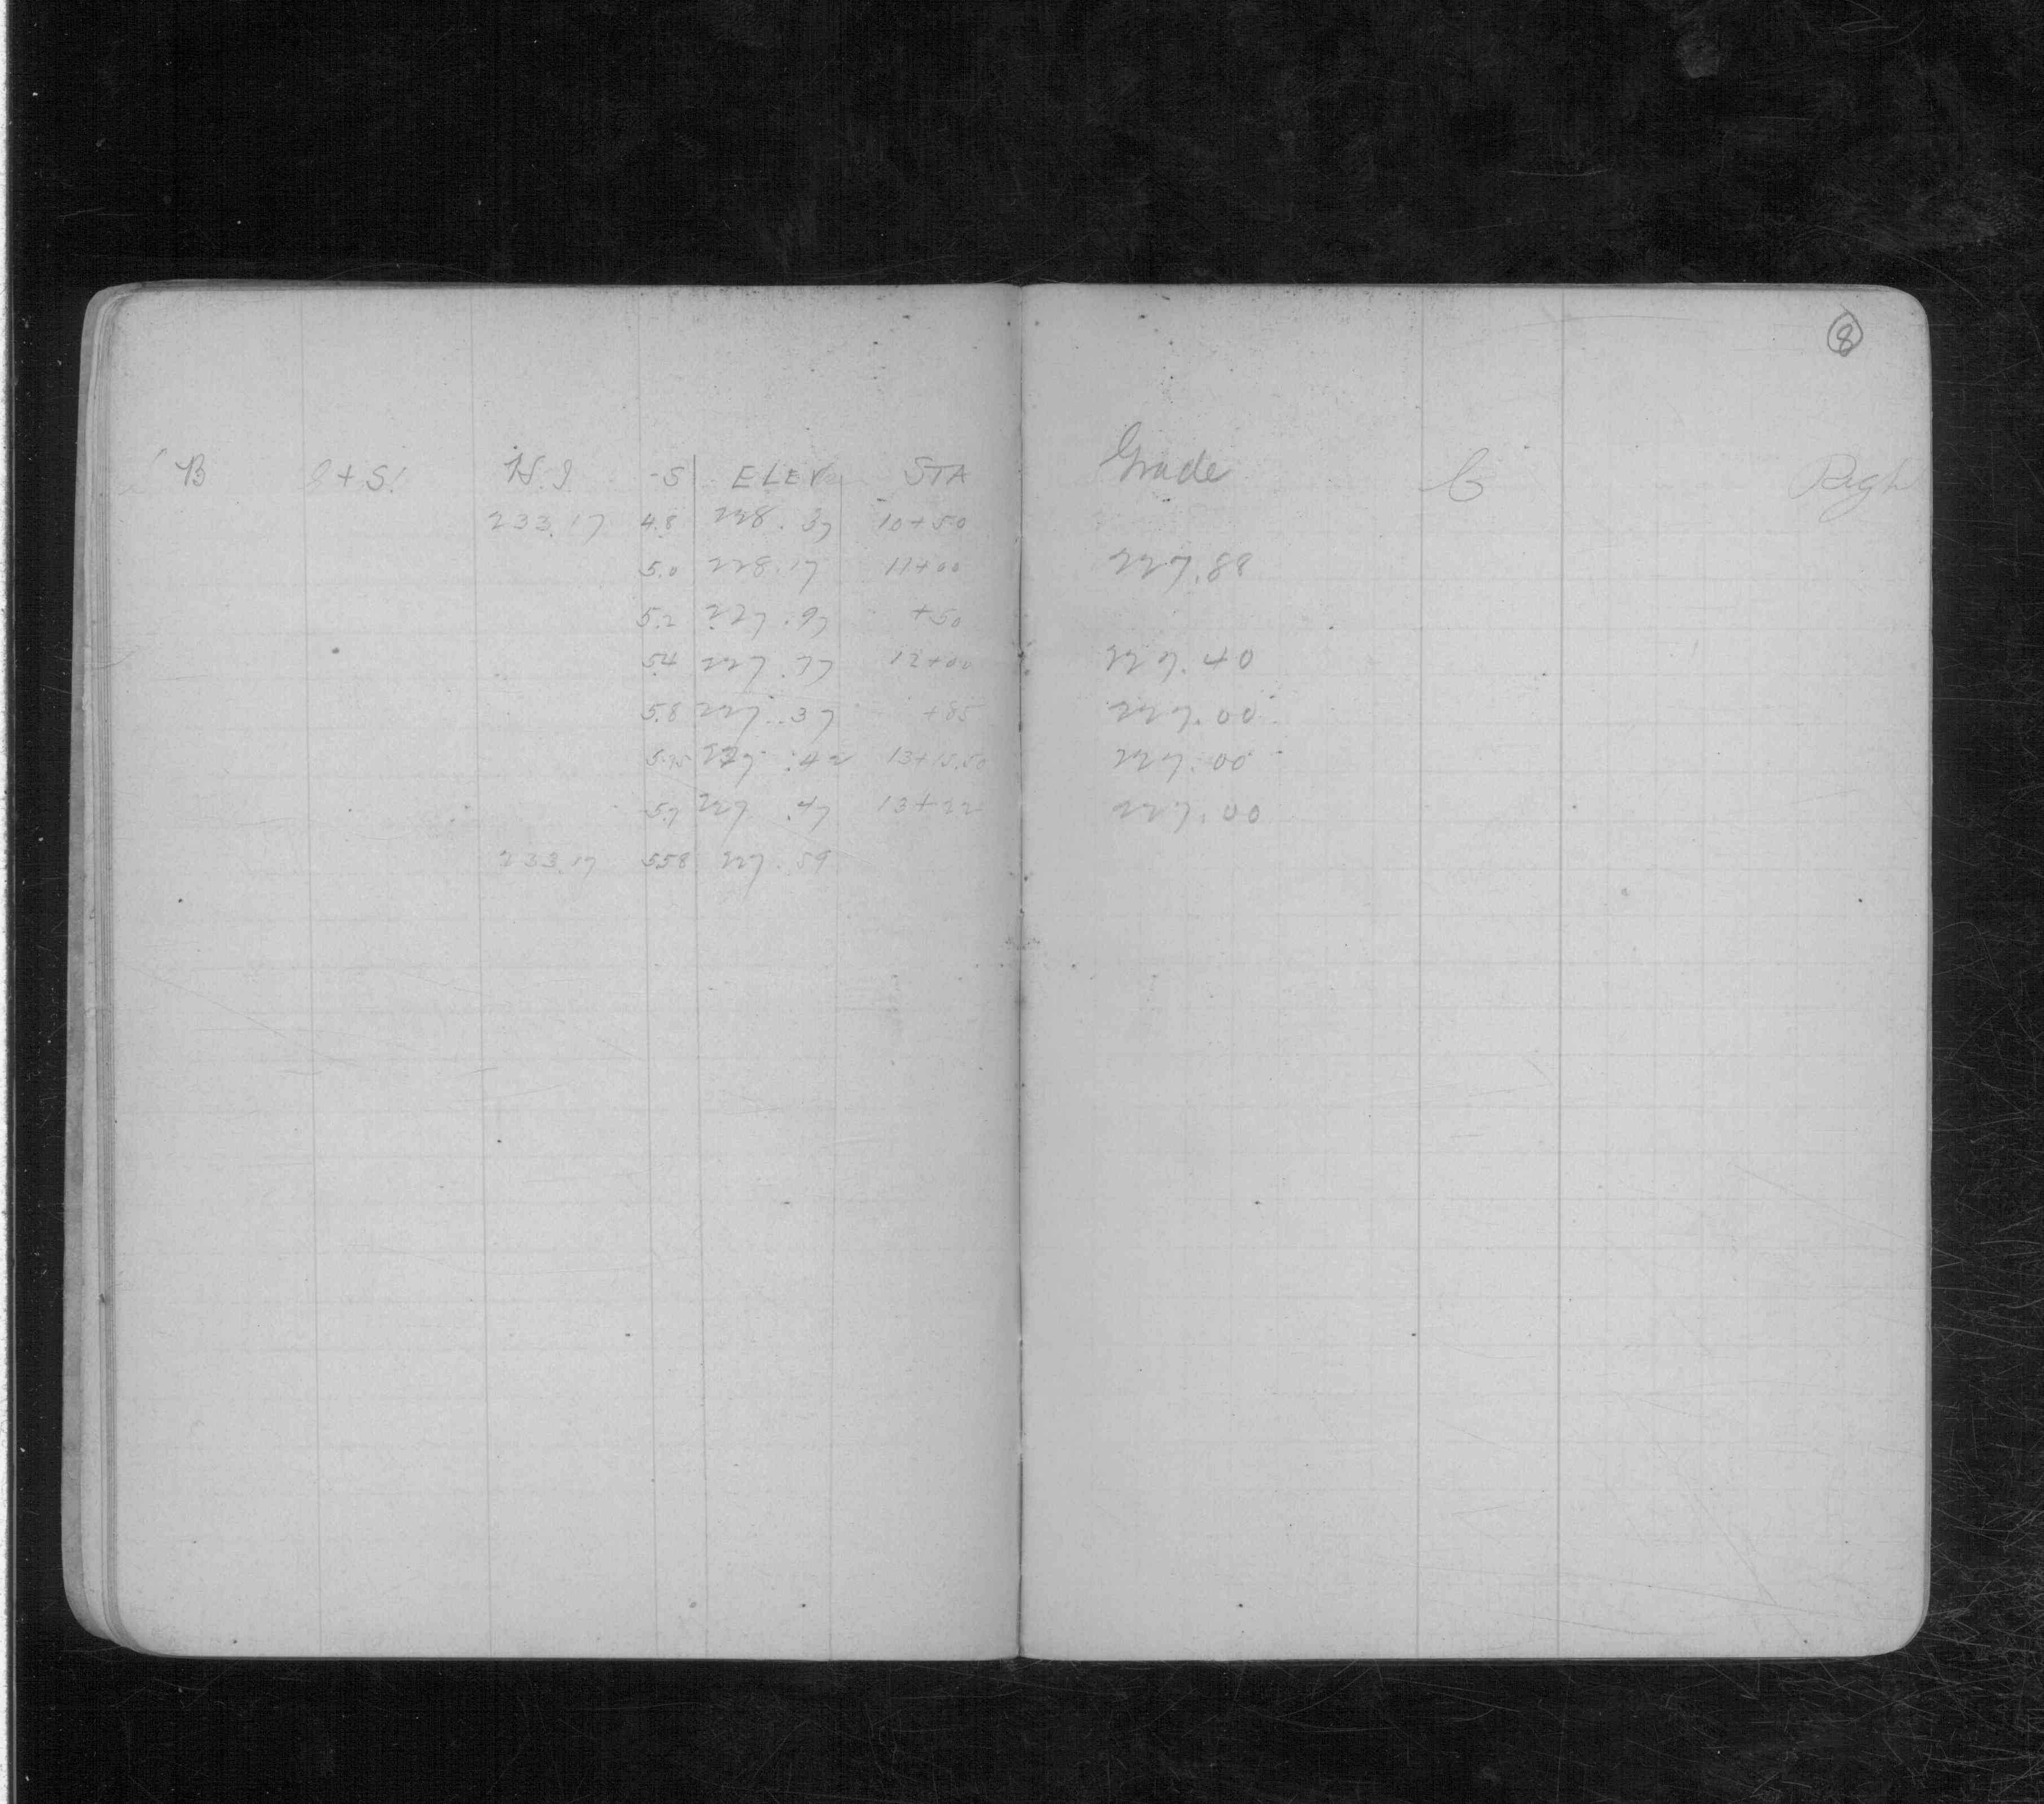 8
B +S! H.I. -S ELEV STA Grade C Righ
233.17 4.8 228.37 10+50
5.0 228.17 11+00 227.88
5.2 227.97 +50
5.4 227.77 12+00 227.40
5.8 227.37 +85 227.00
5.75 227.42 13+15.50 227.00
5.7 227.47 13+22 227.00
233.17 5.58 227.59